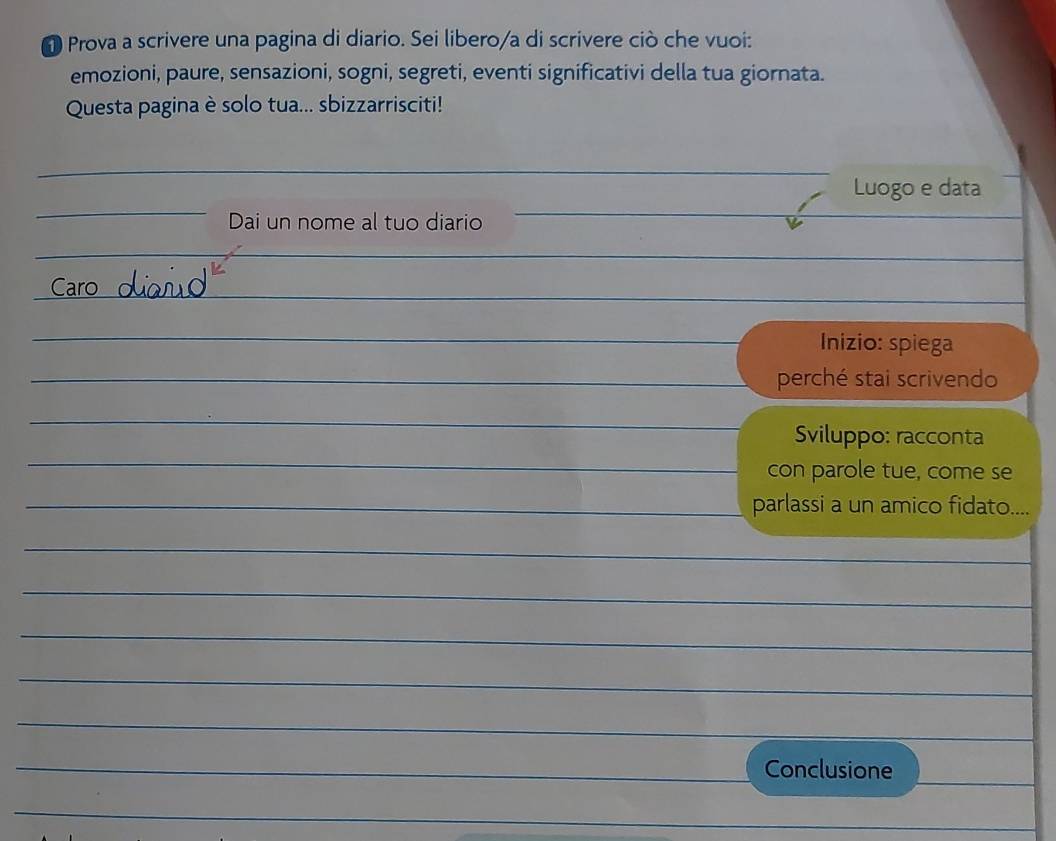 1 Prova a scrivere una pagina di diario. Sei libero/a di scrivere ciò che vuoi:
emozioni, paure, sensazioni, sogni, segreti, eventi significativi della tua giornata.
Questa pagina è solo tua... sbizzarrisciti!
Luogo e data
Dai un nome al tuo diario
Caro diario
Inizio: spiega
perché stai scrivendo
Sviluppo: racconta
con parole tue, come se
parlassi a un amico fidato....
Conclusione